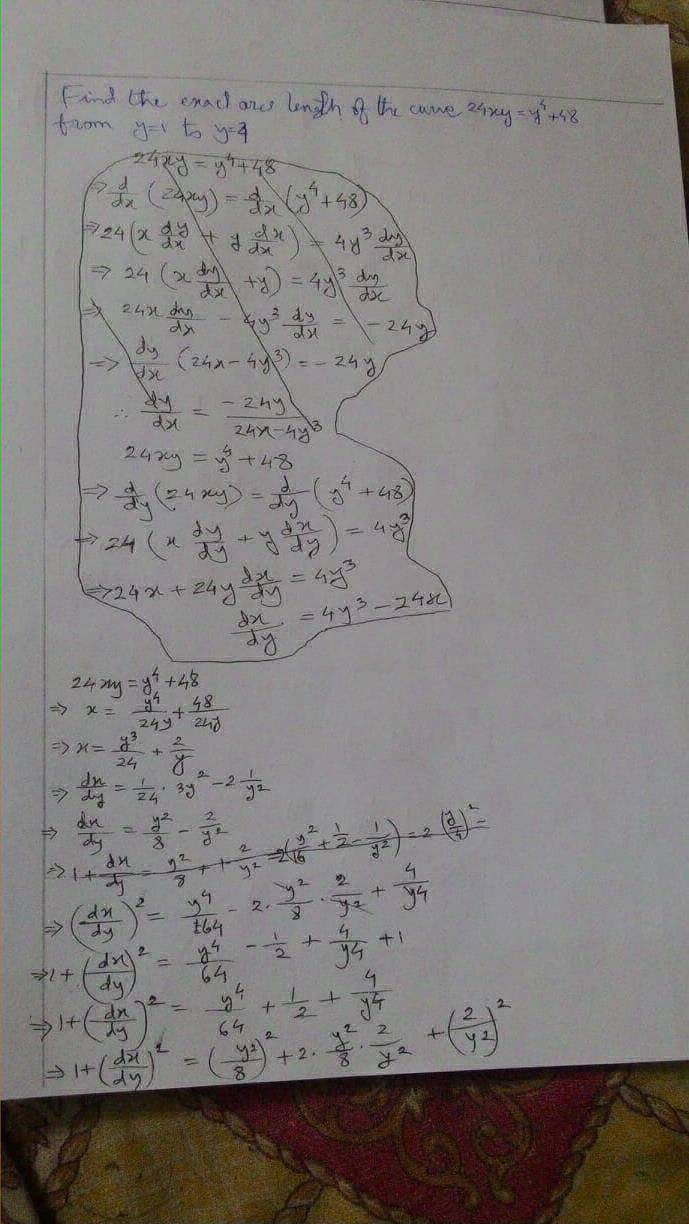 Find the exact arc length of the curve 24xy = y⁴+48
from y=1 to y=4
24xy = y⁴+48
⇒ d/dx (24xy) = d/dx (y⁴+48)
⇒ 24(x dy/dx + y dx/dx) = 4y³ dy/dx
⇒ 24 (x dy/dx + y) = 4y³ dy/dx
⇒ 24x dy/dx - 4y³ dy/dx = - 24y
⇒ dy/dx (24x - 4y³) = - 24y
∴ dy/dx = - 24y / 24x - 4y³
24xy = y⁴ + 48
⇒ d/dy (24xy) = d/dy (y⁴ + 48)
⇒ 24 (x dy/dy + y dx/dy) = 4y³
⇒ 24x + 24y dx/dy = 4y³
dx/dy = 4y³ - 24x
24xy = y⁴ + 48
⇒ x = y⁴/24y + 48/24y
⇒ x = y³/24 + 2/y
⇒ dx/dy = 1/24 · 3y² - 2 1/y²
⇒ dx/dy = y²/8 - 2/y²
⇒ 1 + dx/dy = y²/8 + 1 - 2/y² = 2(y²/16 + 1/2 - 1/y²) = 2 (y/4)² -
⇒ (dx/dy)² = y⁴/64 - 2 · y²/8 · 2/y² + 4/y⁴
⇒ 1 + (dx/dy)² = y⁴/64 - 1/2 + 4/y⁴ + 1
⇒ 1 + (dx/dy)² = y⁴/64 + 1/2 + 4/y⁴
⇒ 1 + (dx/dy)² = (y²/8)² + 2 · y²/8 · 2/y² + (2/y²)²